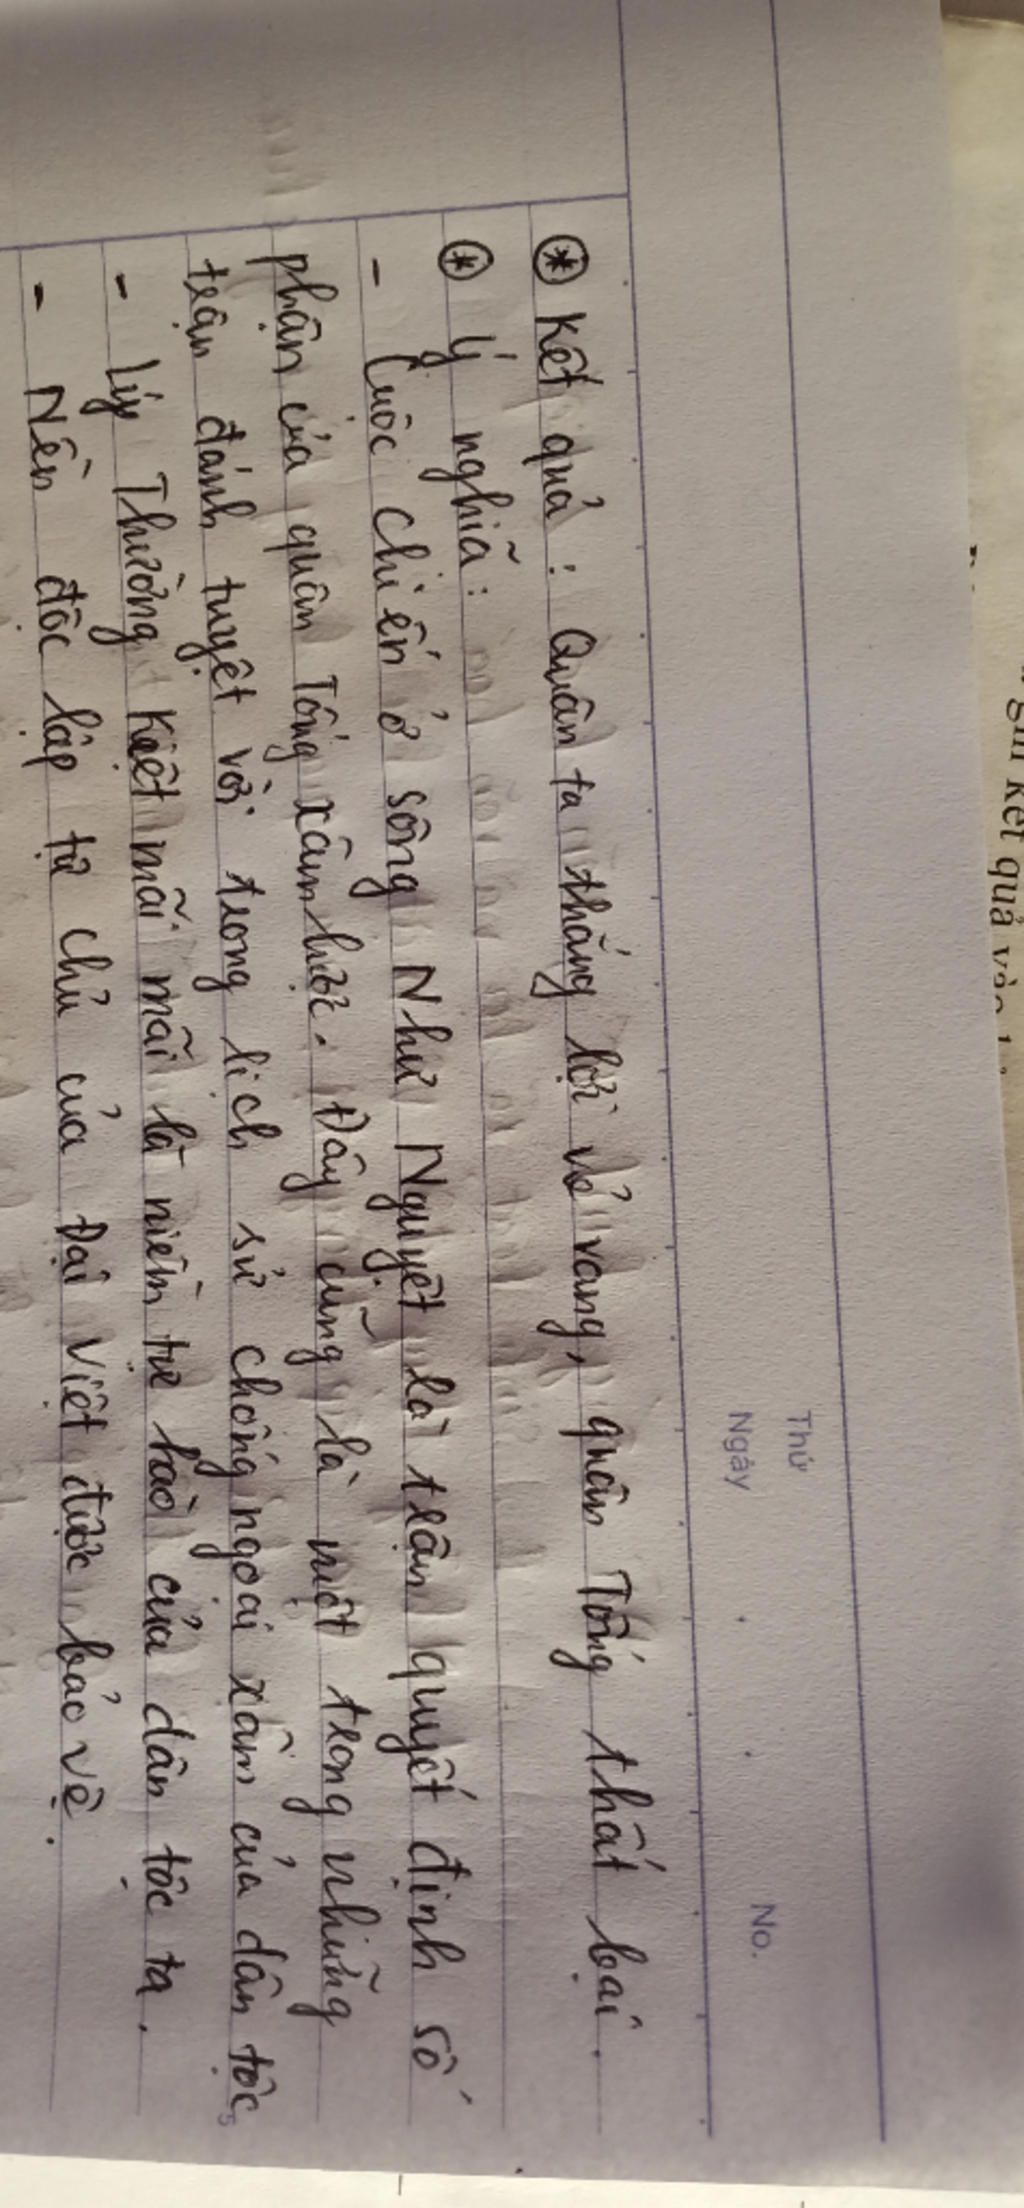 Thứ
Ngày
No.
⊛ Kết quả : Quân ta thắng lợi vẻ vang, quân Tống thất bại.
⊛ Ý nghĩa :
- Cuộc chiến ở sông Như Nguyệt là trận quyết định số
phận của quân Tống xâm lược. Đây cũng là một trong những
trận đánh tuyệt vời trong lịch sử chống ngoại xâm của dân tộc
- Lý Thường Kiệt mãi mãi là niềm tự hào của dân tộc ta.
- Nền độc lập tự chủ của Đại Việt được bảo vệ.
kết quả và